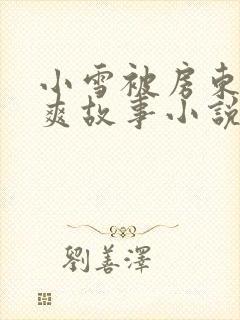 小雪被房東
爽故事小說
劉善澤